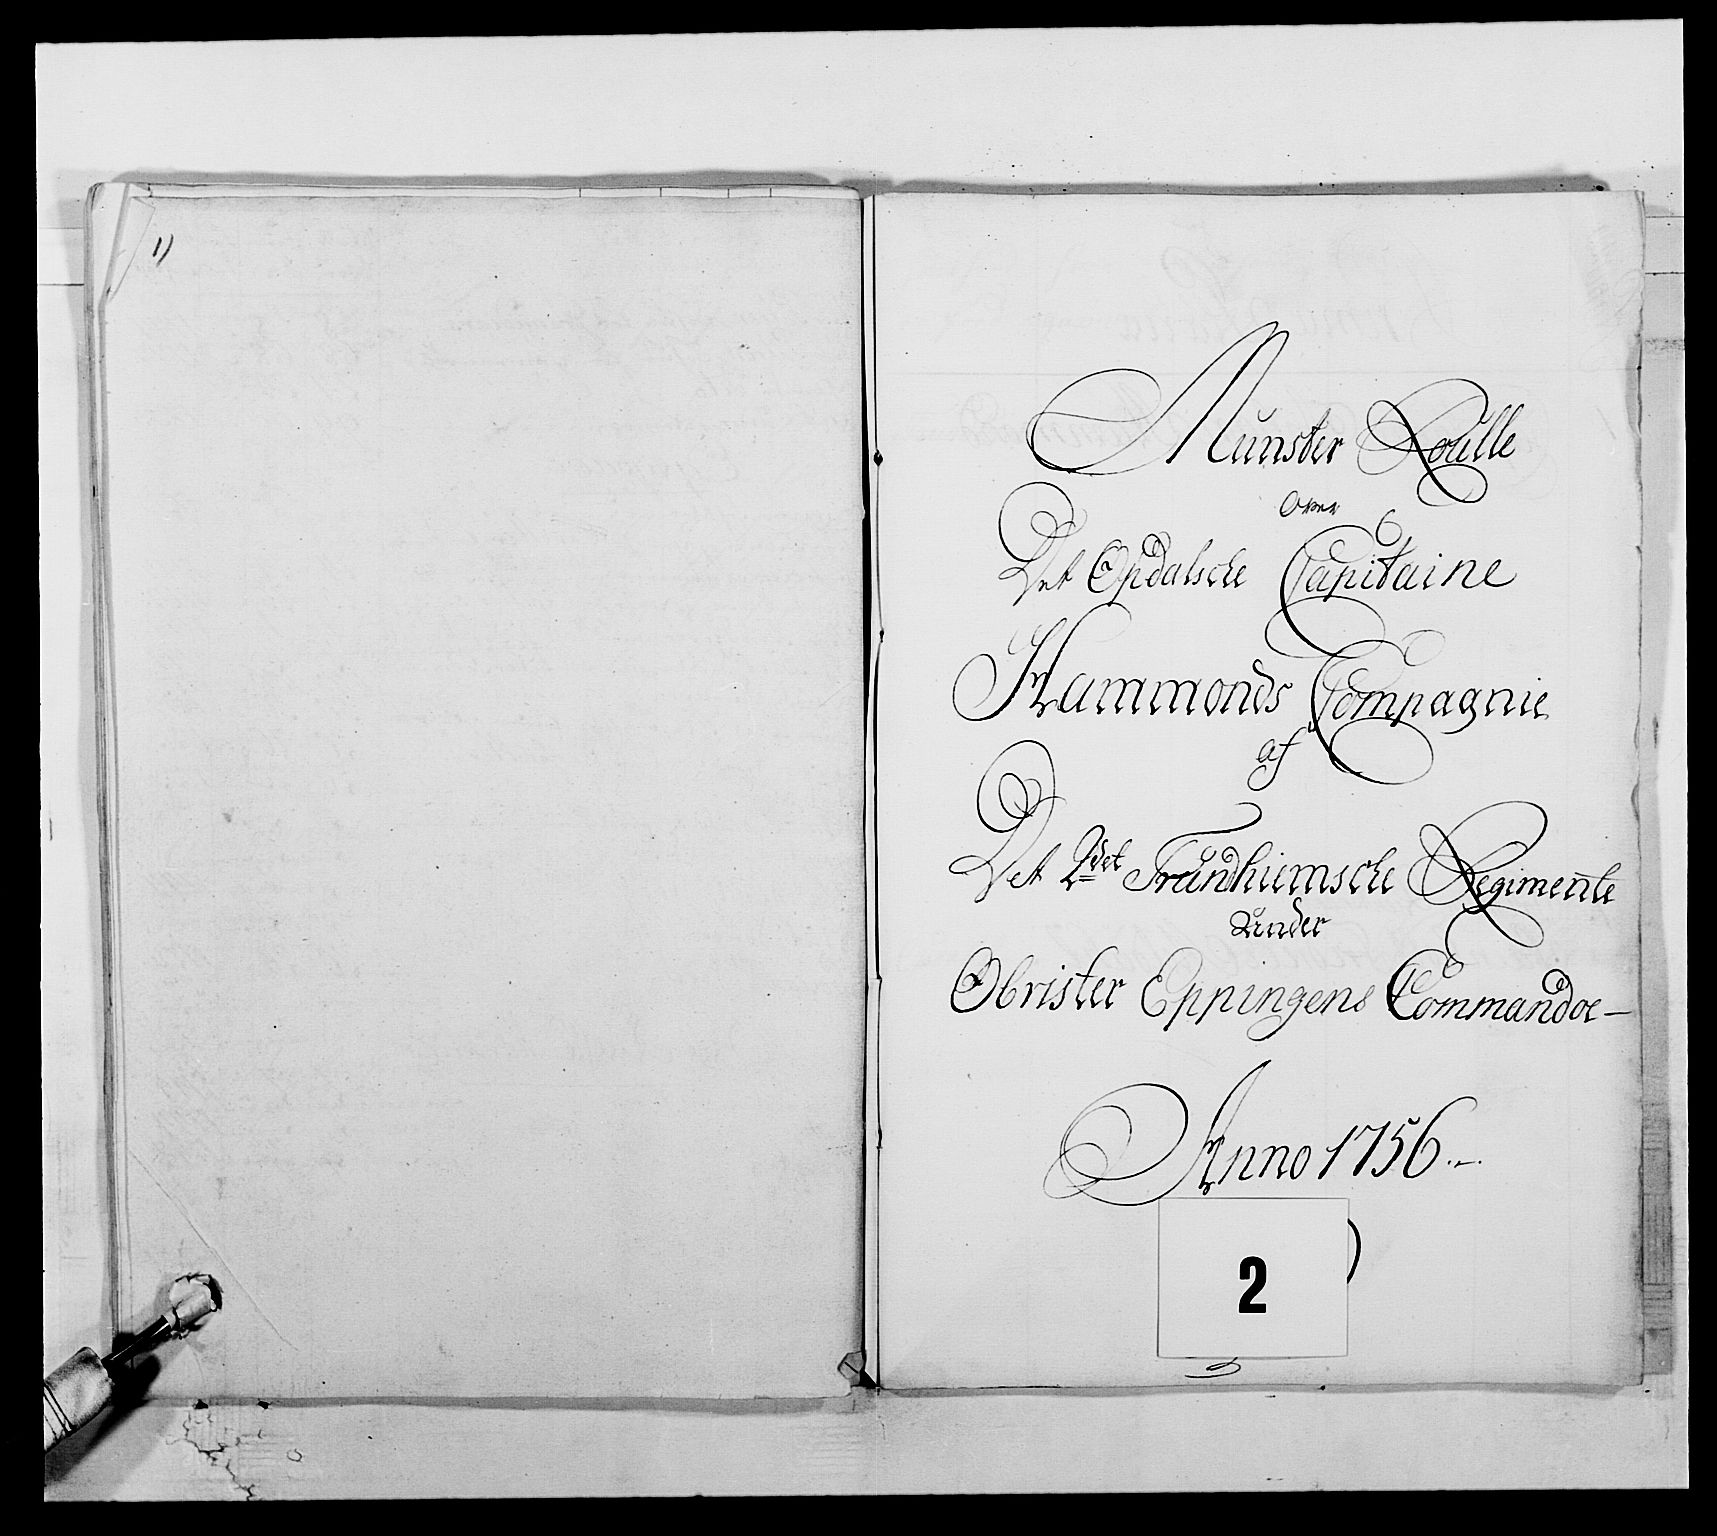 1)
Munster Roulle
Over
Det Opdalsche Capitaine
Hammonds Compagnie
af
Det 2det Trundhiemsche Regimente
Under
Obrister Eppingens Commandoe—
Anno 1756.—.
2